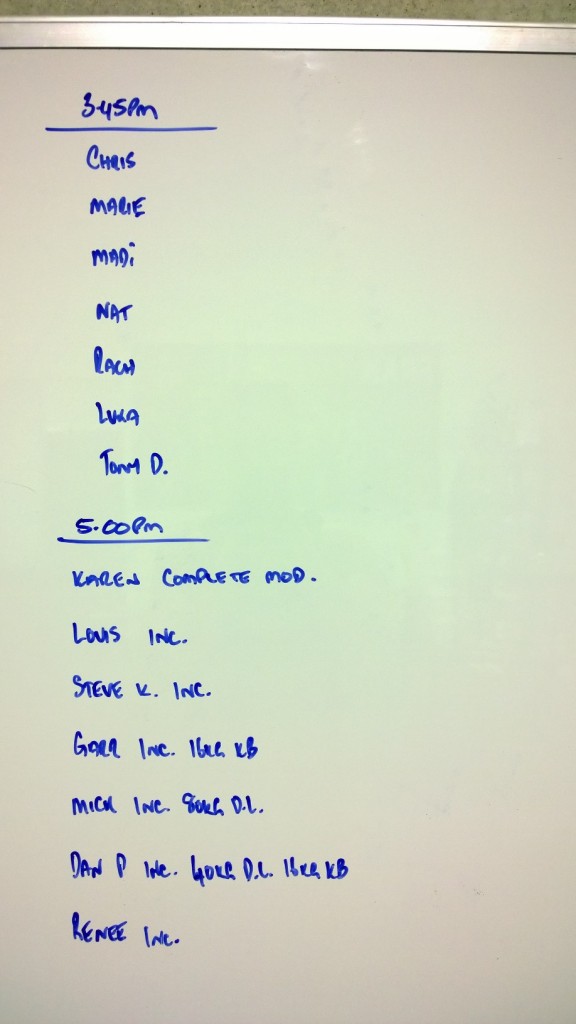 3.45PM
CHRIS
MARIE
MADi
NAT
RACH
LUKA
TONY D.
5.00PM
KAREN COMPLETE MOD.
LOUIS INC.
STEVE K. INC.
INC. 16KG KB
MICK INC. 80KG D.L.
DAN P INC. 40KG D.L. 16KG KB
RENEE INC.